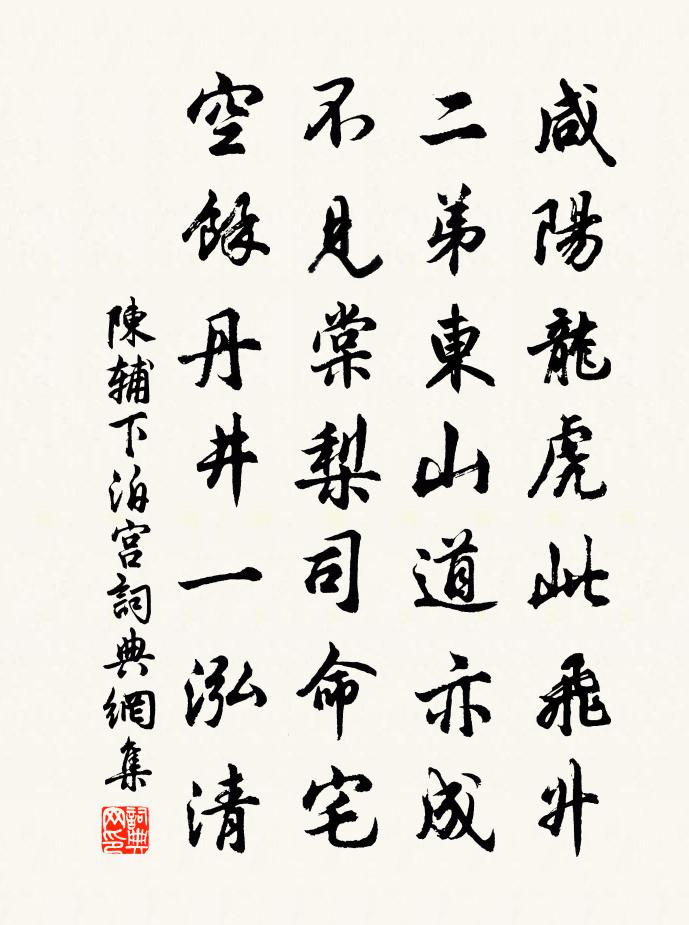 咸陽龍虎此飛升
二弟東山道亦成
不見棠梨司命宅
空餘丹井一泓清
陳輔下泊宮詞典網集
詞典网印